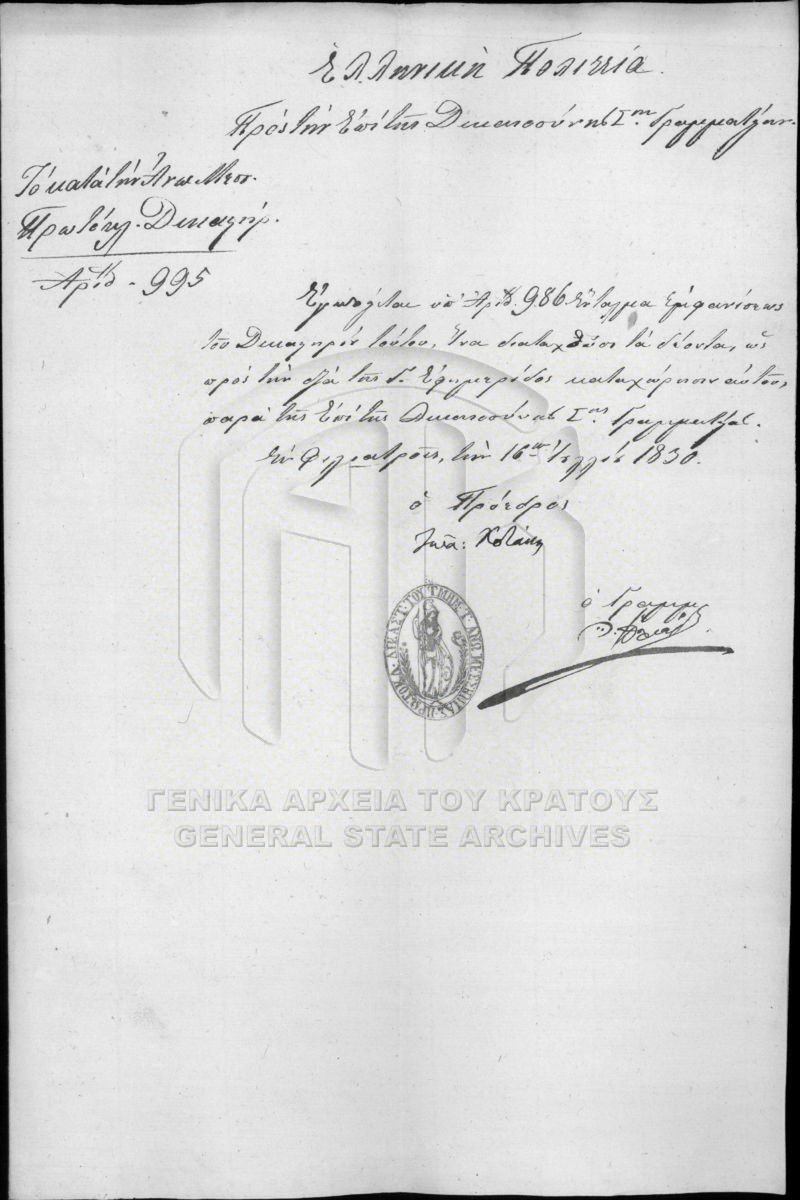 Ἑλληνικὴ Πολιτεία.
Πρὸς τὴν Ἐπὶ τῆς Δικαιοσύνης Γραμματείαν.
Τὸ κατὰ τὴν Ἄνω Μεσσ.
Πρωτόκλ. Δικαστήρ.
Ἀριθ. 995
Ἐγκλείεται ὑπ' Ἀριθ. 986 ἔνταλμα ἐμφανίσεως
τοῦ Δικαστηρίου τούτου, ἵνα διαταχθῶσι τὰ δέοντα, ὡς
πρὸς τὴν διὰ τῆς Γ. Ἐφημερίδος καταχώρησιν αὐτοῦ,
παρὰ τῆς Ἐπὶ τῆς Δικαιοσύνης Γραμματείας.
Ἐν Φιλιατροῖς, τὴν 16 Ἰουλίου 1830.
ὁ Πρόεδρος
ὁ Γραμμ
ΠΡΩΤΟΚΛ. ΔΙΚΑΣΤ. ΤΟΥ ΤΜΗΜ. Τ. ΑΝΩ ΜΕΣΣΗΝΙΑΣ
ΓΕΝΙΚΑ ΑΡΧΕΙΑ ΤΟΥ ΚΡΑΤΟΥΣ
GENERAL STATE ARCHIVES